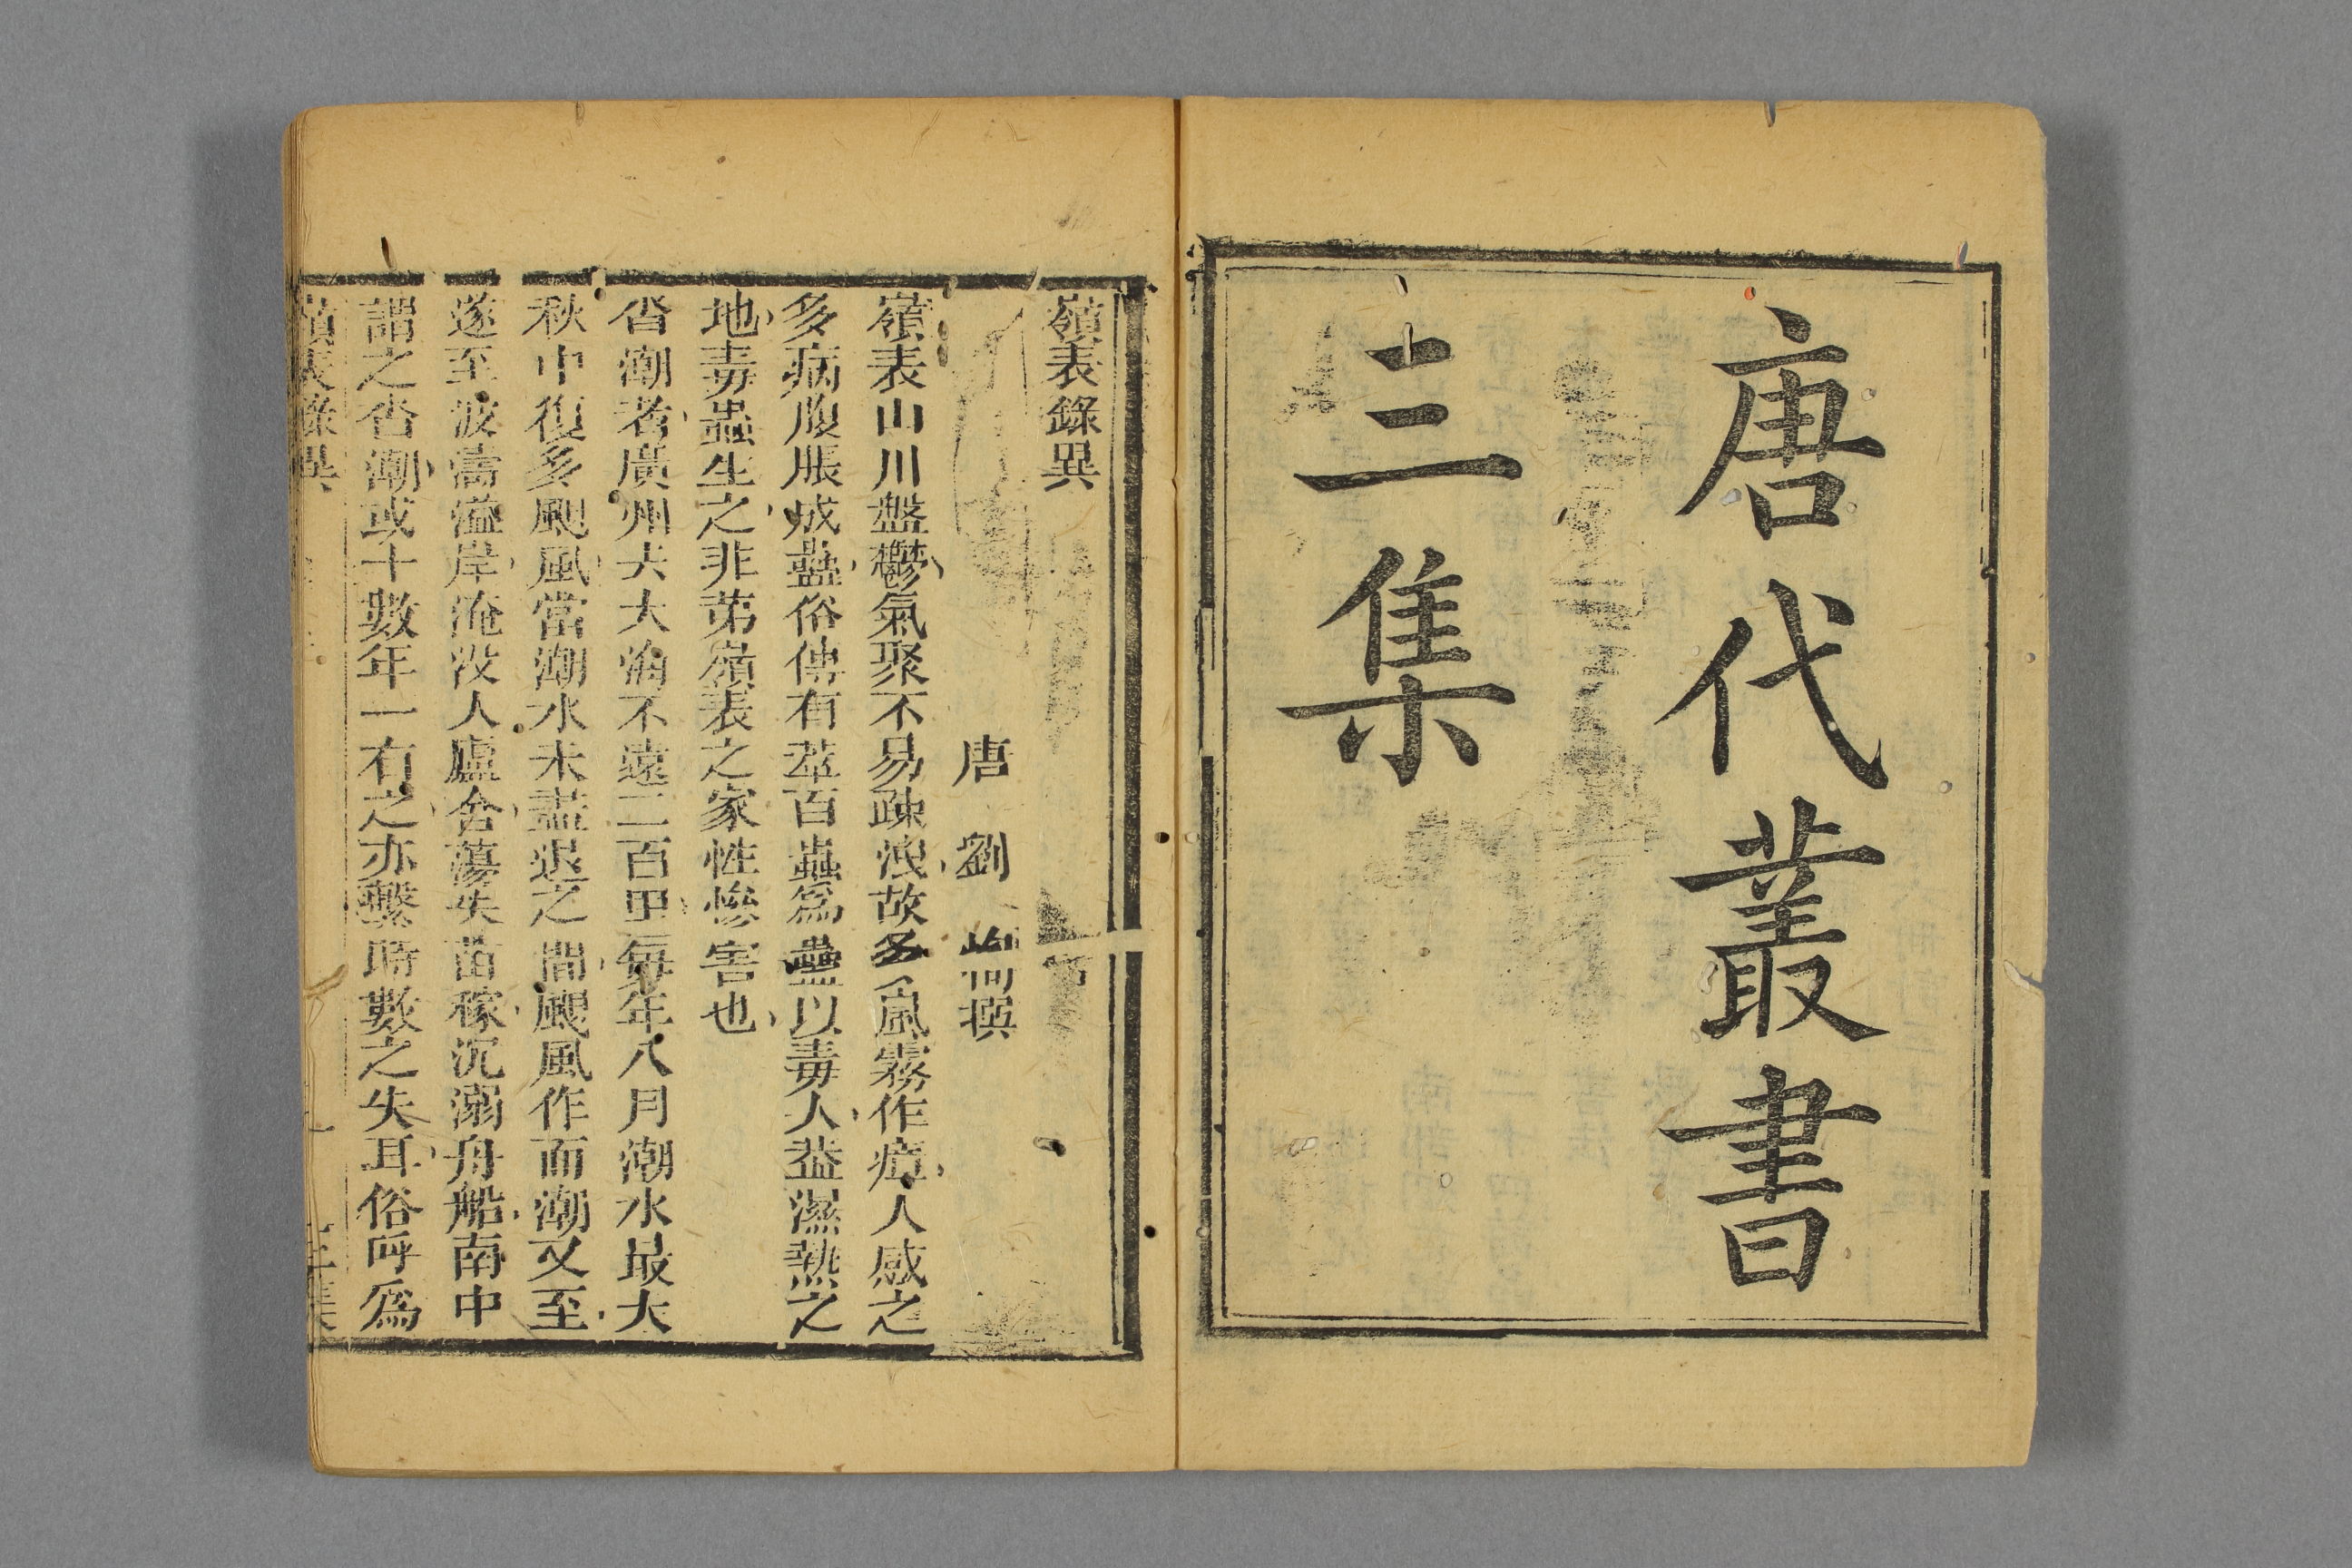 唐代叢書
三集
嶺表錄異
唐 劉 恂撰
嶺表山川盤鬱氣聚不易疎洩故多嵐霧作瘴人感之
多病腹脹成蠱俗傳有萃百蟲為蠱以毒人葢濕熱之
地毒蟲生之非苐嶺表之家性慘害也
沓潮者廣州去大海不遠二百里每年八月潮水最大
秋中復多颶風當潮水未盡退之間颶風作而潮又至
遂至波濤溢岸淹没人廬舍蕩失苗稼沉溺舟船南中
謂之沓潮或十數年一有之亦繫時數之失耳俗呼爲
嶺表錄異 一 三集